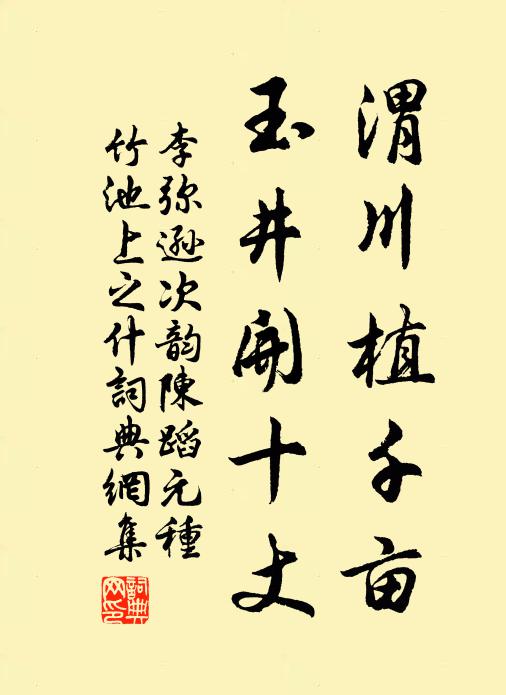 渭川植千亩
玉井開十丈
李弥遜次韵陳蹈元種
竹池上之什詞典網集
詞典网印